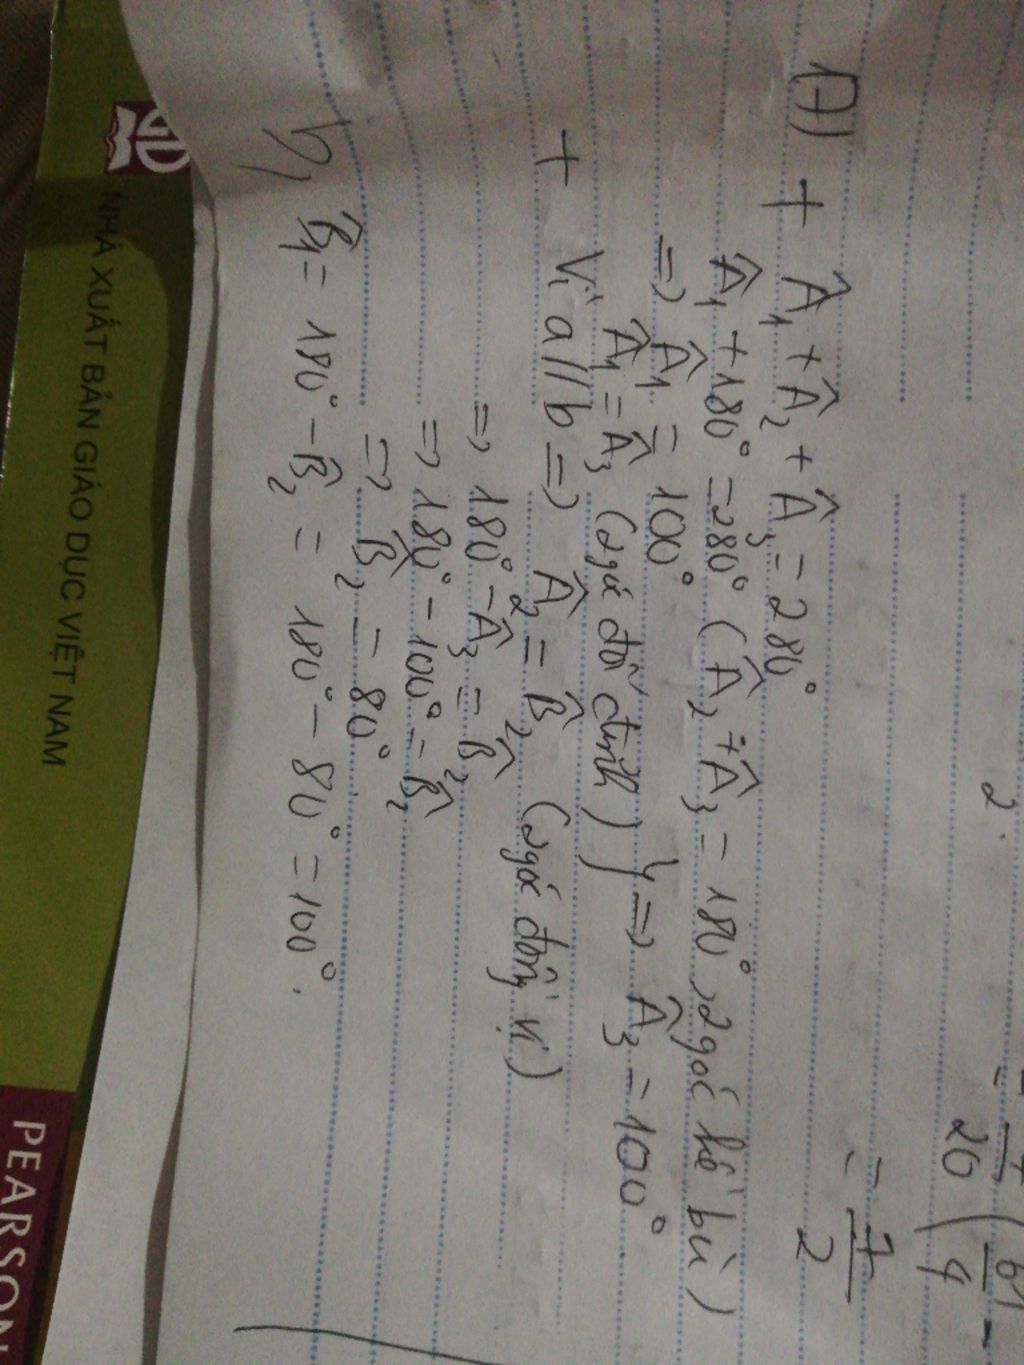 2
= 7/20 (61/4 -
= 7/2
(A) + Â₁ + Â₂ + Â₃ = 280°
Â₁ + 180° = 280° (Â₂ + Â₃ = 180°, 2 góc kề bù)
=> Â₁ = 100°
Â₁ = Â₃ (2 góc đối đỉnh) } => Â₃ = 100°
+ Vì a // b => Â₂ = B̂₂ (2 góc đồng vị)
=> 180° - Â₃ = B̂₂
=> 180° - 100° = B̂₂
=> B̂₂ = 80°
b, B̂₁ = 180° - B̂₂ = 180° - 80° = 100°.
NHÀ XUẤT BẢN GIÁO DỤC VIỆT NAM
PEARSON